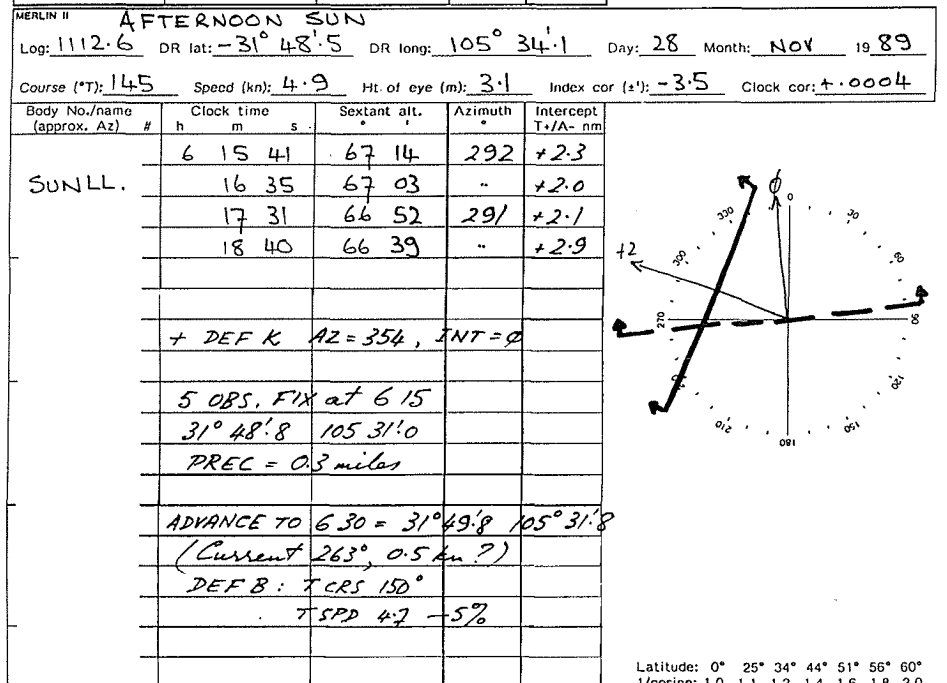 MERLIN II AFTERNOON SUN
Log: 1112.6 DR lat: -31° 48'.5 DR long: 105° 34'.1 Day: 28 Month: NOV 19 89
Course (°T): 145 Speed (kn): 4.9 Ht. of eye (m): 3.1 Index cor (±'): -3.5 Clock cor: +.0004
Body No./name Clock time Sextant alt. Azimuth Intercept
(approx. Az) # h m s ° ' ° T+/A- nm
6 15 41 67 14 292 +2.3
SUN LL. 16 35 67 03 " +2.0
17 31 66 52 291 +2.1
18 40 66 39 " +2.9
+ DEF K AZ=354, INT=Ø
5 OBS. FIX at 6 15
31° 48'.8 105 31'.0
PREC = 0.3 miles
ADVANCE TO 6 30 = 31° 49'.8 105° 31'.8
(Current 263°, 0.5 kn ?)
DEF B: T CRS 150°
T SPD 4.7 -5%
Ø
0
330 30
+2 300 60
270 90
240 120
210 150
180
Latitude: 0° 25° 34° 44° 51° 56° 60°
1/cosine: 1.0 1.1 1.2 1.4 1.6 1.8 2.0